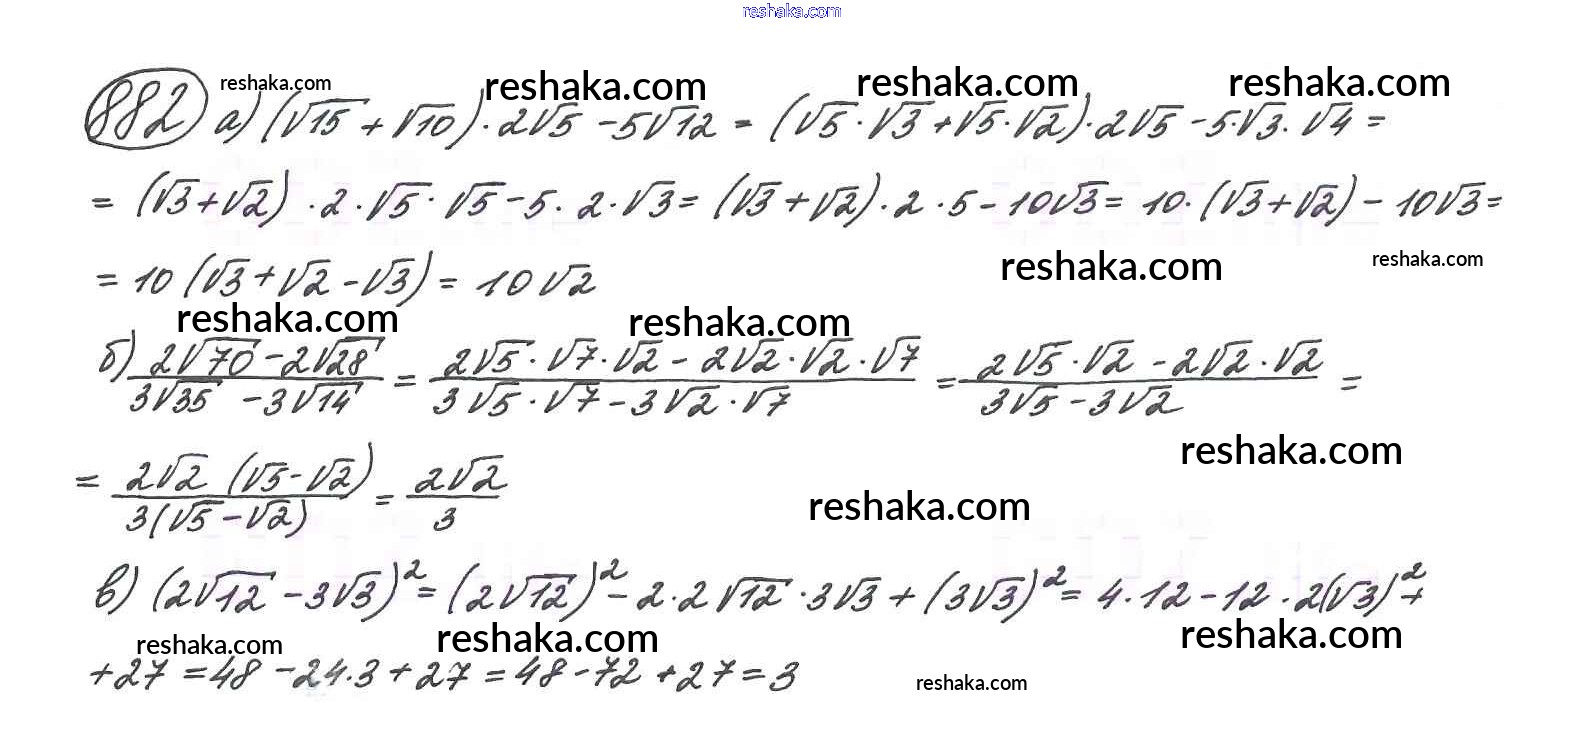 reshaka.com
reshaka.com reshaka.com reshaka.com reshaka.com
882 а) (√15 + √10) · 2√5 − 5√12 = (√5 · √3 + √5 · √2) · 2√5 − 5 · √3 · √4 =
= (√3 + √2) · 2 · √5 · √5 − 5 · 2 · √3 = (√3 + √2) · 2 · 5 − 10√3 = 10 · (√3 + √2) − 10√3 =
reshaka.com reshaka.com
= 10 (√3 + √2 − √3) = 10√2
reshaka.com reshaka.com
б) (2√70 − 2√28)/(3√35 − 3√14) = (2√5 · √7 · √2 − 2√2 · √2 · √7)/(3√5 · √7 − 3√2 · √7) = (2√5 · √2 − 2√2 · √2)/(3√5 − 3√2) =
reshaka.com
= (2√2 (√5 − √2))/(3(√5 − √2)) = (2√2)/3
reshaka.com
в) (2√12 − 3√3)² = (2√12)² − 2 · 2√12 · 3√3 + (3√3)² = 4 · 12 − 12 · 2(√3)² +
reshaka.com reshaka.com reshaka.com
+ 27 = 48 − 24 · 3 + 27 = 48 − 72 + 27 = 3
reshaka.com